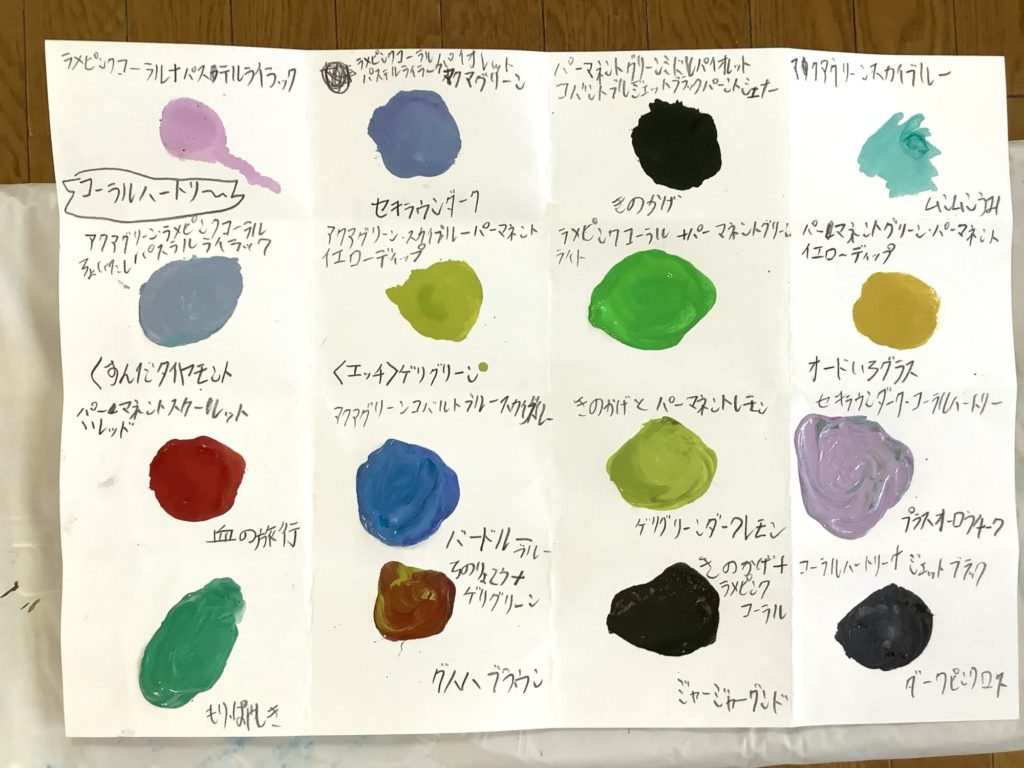 ラメピンクコーラル+パステルライラック
コーラルハートリー〜
ラメピンクコーラルバイオレット
パステルライラック アクアグリーン
セキラウンダーク
パーマネントグリーンミドルバイオレット
コバルトブルジェットブラックバーントシェナー
きのかげ
アクアグリーンスカイブルー
アクアグリーン・ラメピンクコーラル
ちょいたしパステルライラック
くすんだダイヤモンド
アクアグリーン・スカイブルー・パーマネント
イエローディップ
〈エッチ〉ゲリグリーン
ラメピンクコーラル +パーマネントグリーン
ライト
パーマネントグリーン・パーマネント
イエローディップ
オードいろグラス
パーマネントスケールレット
いレッド
血の旅行
アクアグリーンコバルトブルースカイブルー
バードルーラルー
きのかげと パーマネントレモン
ゲリグリーンダークレモン
セキラウンダーク・コーラルハートリー
プラスオーロラチーク
もり・ぱやしき
ちのりょこう+
ゲリグリーン
グハハブラウン
きのかげ+
ラメピンク
コーラル
ジャージャーグンド
コーラルハートリー+ジェットブラック
ダークピンクロス